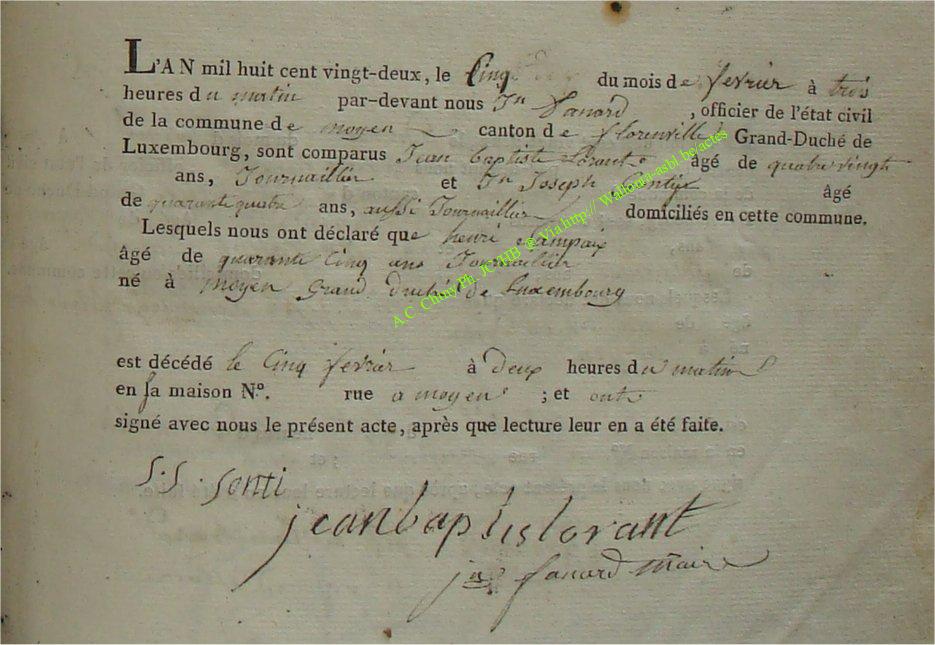 L'AN mil huit cent vingt-deux, le Cinq du mois de fevrier à trois
heures du matin par-devant nous Jn fanard, officier de l'état civil
de la commune de moyen canton de florenville Grand-Duché de
Luxembourg, sont comparus Jean baptiste Lorant âgé de quatre vingt
ans, Journaillier et Jn Joseph âgé
de quarante quatre ans, aussi Journaillier domiciliés en cette commune.
Lesquels nous ont déclaré que henri
âgé de quarante Cinq ans Journaillier
né à moyen grand duché de Luxembourg
est décédé le Cinq fevrier à Deux heures du matin
en sa maison N.º rue a moyen ; et ont
signé avec nous le présent acte, après que lecture leur en a été faite.
J.J. Sonti
jean baptis lorant
jn fanard maire
A.C. Chiny Ph. JC HB @ Via http:// Wallonia-asbl.be/actes